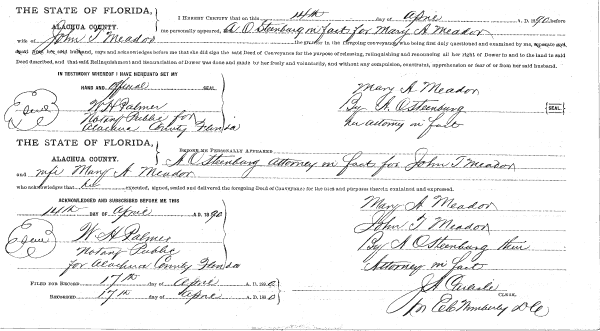 THE STATE OF FLORIDA,
ALACHUA COUNTY.
I HEREBY CERTIFY that on this 14th day of April A. D. 1890, before
me personally appeared, A O Steenburg in fact for Mary A Meador
wife of John T Meador the grantor in the foregoing conveyance, who being first duly questioned and examined by me, separate and
apart from her said husband, says and acknowledges before me that she did sign the said Deed of Conveyance for the purpose of releasing, relinquishing and renouncing all her right of Dower to and to the land in said
Deed described, and that said Relinquishment and Renunciation of Dower was done and made by her freely and voluntarily, and without any compulsion, constraint, apprehension or fear of or from her said husband.
IN TESTIMONY WHEREOF I HAVE HEREUNTO SET MY
HAND AND official SEAL
Mary A Meador
W H Palmer
By A O Steenburg {SEAL}
Notary Public for
her Attorney in fact
Alachua County Florida
THE STATE OF FLORIDA,
ALACHUA COUNTY.
BEFORE ME PERSONALLY APPEARED
A O Steenburg Attorney in fact for John T Meador
and wife Mary A Meador
who acknowledges that he executed, signed, sealed and delivered the foregoing Deed of Conveyance for the uses and purposes therein contained and expressed.
ACKNOWLEDGED AND SUBSCRIBED BEFORE ME THIS
14th DAY OF April A. D. 1890
Mary A Meador
John T Meador
W H Palmer
By A O Steenburg their
Notary Public
for Alachua County Florida
Attorney in fact
FILED FOR RECORD 17th day of April A. D. 1890
RECORDED 17th day of April A. D. 1890
CLERK.